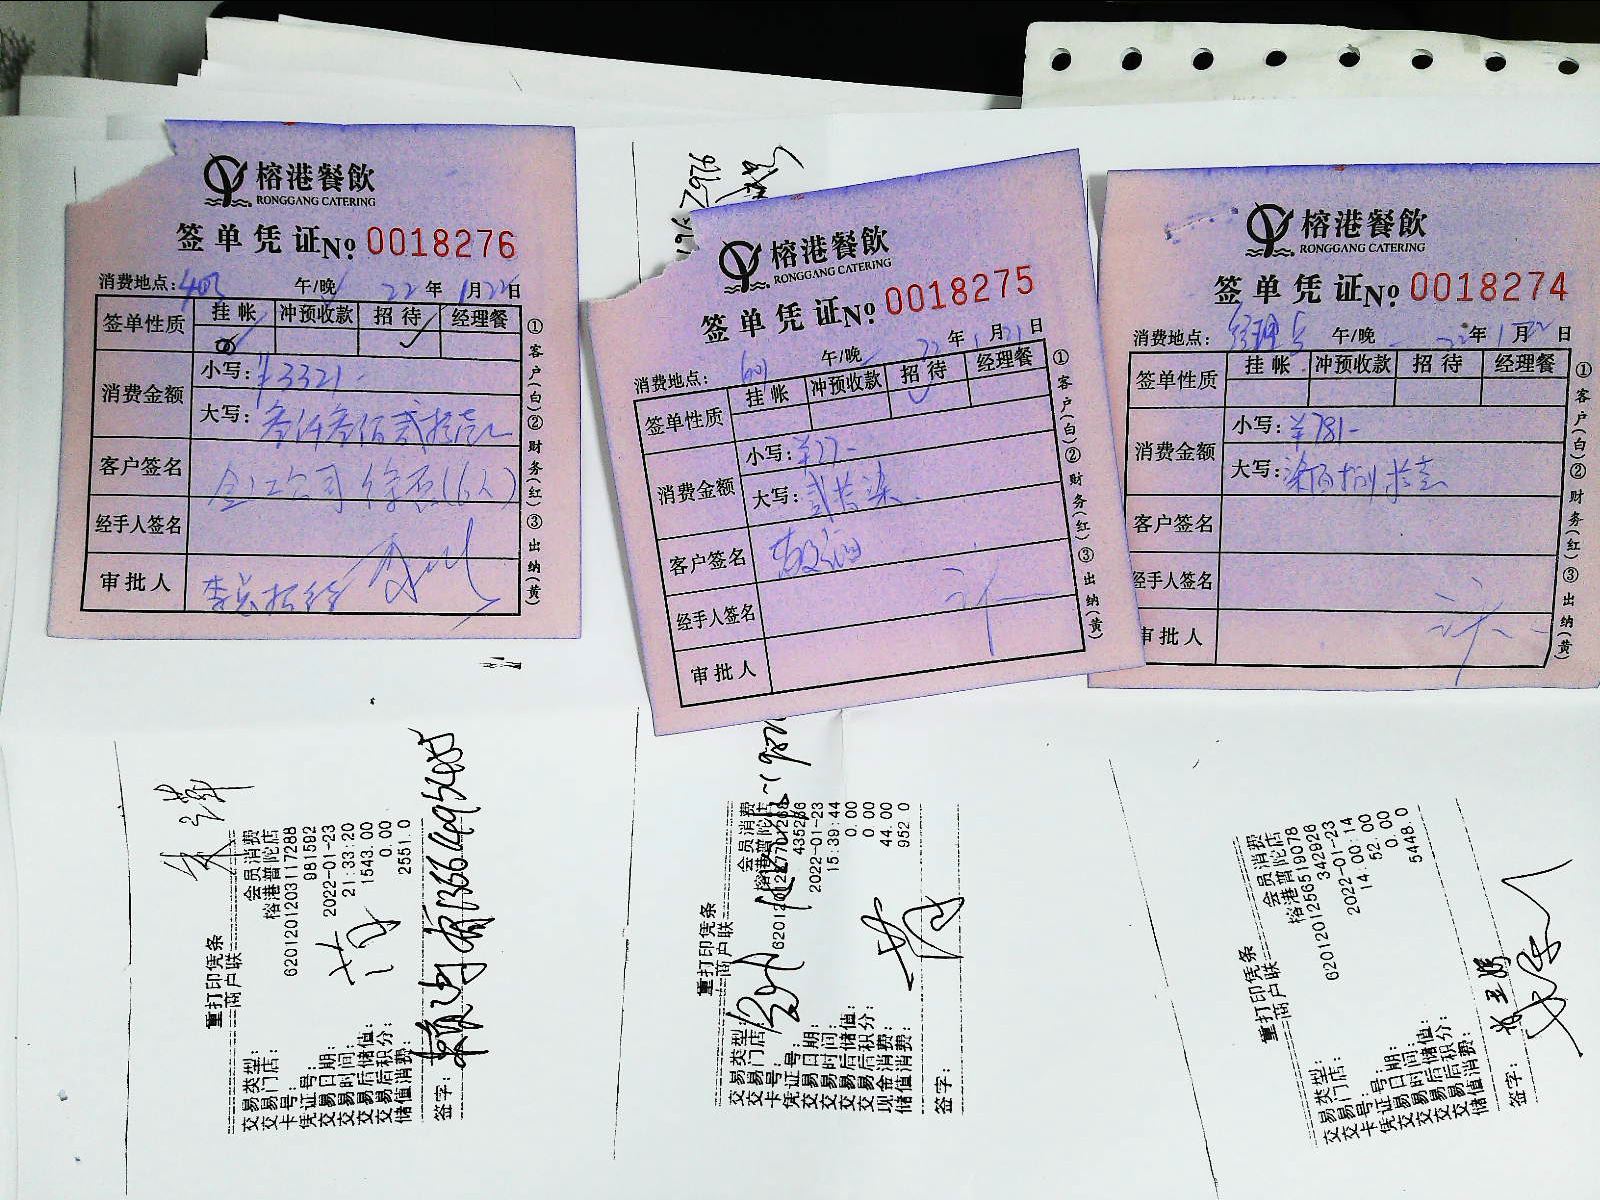 榕港餐飲
RONGGANG CATERING
签单凭证№ 0018276
消费地点: 午/晚 22年1月22日
签单性质 挂帐 冲预收款 招待 经理餐
消费金额 小写: ¥3321-
大写: 叁仟叁佰贰拾壹
客户签名
经手人签名
审批人
①客户(白)②财务(红)③出纳(黄)
榕港餐飲
RONGGANG CATERING
签单凭证№ 0018275
消费地点: 601 午/晚 22年1月21日
签单性质 挂帐 冲预收款 招待 经理餐
消费金额 小写: ¥27-
大写: 贰拾柒
客户签名
经手人签名
审批人
①客户(白)②财务(红)③出纳(黄)
榕港餐飲
RONGGANG CATERING
签单凭证№ 0018274
消费地点: 午/晚 22年1月22日
签单性质 挂帐 冲预收款 招待 经理餐
消费金额 小写: ¥781-
大写: 柒佰捌拾壹
客户签名
经手人签名
审批人
①客户(白)②财务(红)③出纳(黄)
重打印凭条
商户联
交易类型: 会员消费
交易门店: 榕港普陀店
卡号: 6201201203117288
凭证号: 981592
交易日期: 2022-01-23
交易时间: 21:33:20
交易后储值: 1543.00
交易后积分: 0.00
储值消费: 2551.0
签字:
重打印凭条
商户联
交易类型: 会员消费
交易门店: 榕港普陀店
卡号:
凭证号: 435286
交易日期: 2022-01-23
交易时间: 15:39:44
交易后储值: 0.00
交易后积分: 0.00
现金消费: 44.00
储值消费: 952.0
签字:
重打印凭条
商户联
交易类型: 会员消费
交易门店: 榕港普陀店
卡号: 6201201256519078
凭证号: 342926
交易日期: 2022-01-23
交易时间: 14:00:14
交易后储值: 52.00
交易后积分: 0.00
储值消费: 5448.0
签字: